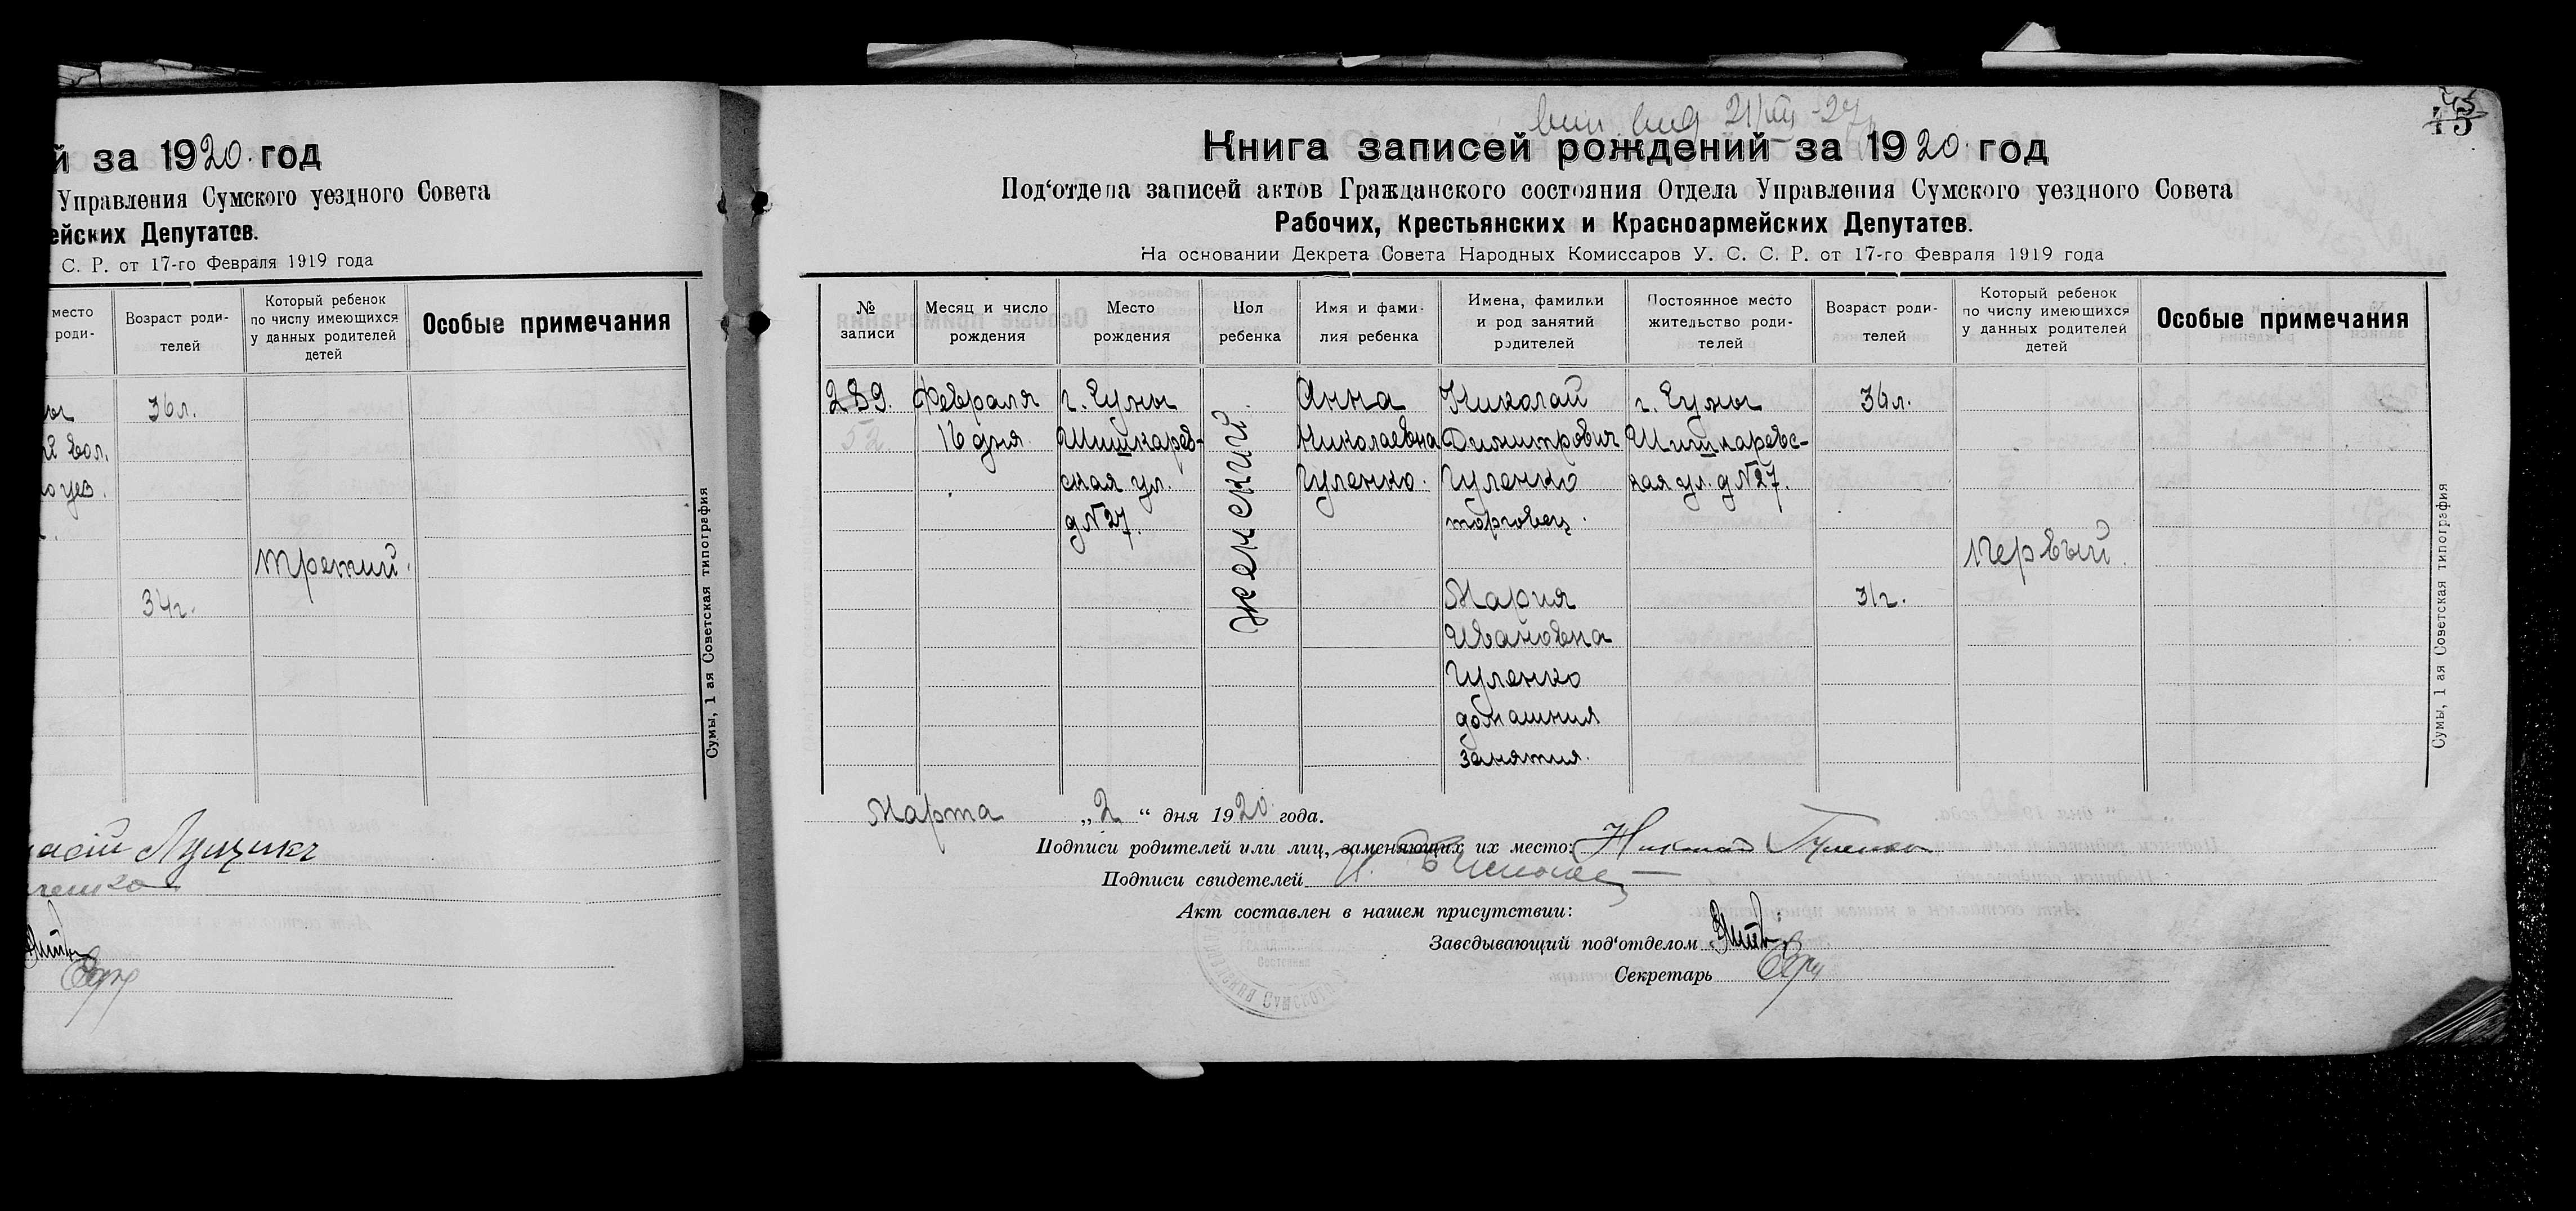 й за 1920 год
Управления Сумского уездного Совета
ейских Депутатов.
С. Р. от 17-го Февраля 1919 года
место
роди-
Возраст роди-
телей
Который ребенок
по числу имеющихся
у данных родителей
детей
Особые примечания
36 л.
вол.
уез.
третий.
34 г.
Сумы, 1 ая Советская типография
45
45
Книга записей рождений за 1920 год
Под‘отдела записей актов Гражданского состояния Отдела Управления Сумского уездного Совета
Рабочих, Крестьянских и Красноармейских Депутатов.
На основании Декрета Совета Народных Комиссаров У. С. С. Р. от 17-го Февраля 1919 года
№
записи
Месяц и число
рождения
Место
рождения
Пол
ребенка
Имя и фами-
лия ребенка
Имена, фамилии
и род занятий
родителей
Постоянное место
жительство роди-
телей
Возраст роди-
телей
Который ребенок
по числу имеющихся
у данных родителей
детей
Особые примечания
239.
52
Февраля
16 дня
г. Сумы
Шишкарев-
ская ул.
д № 27.
женский
Анна
Николаевна
Гуленко.
Николай
Димитрович
Гуленко
торговец.
Мария
Ивановна
Гуленко
домашния
занятия.
г. Сумы
Шишкаревс-
кая ул. д № 27.
36 л.
31 г.
первый.
Сумы, 1 ая Советская типография
Марта „2“ дня 1920 года.
Подписи родителей или лиц, заменяющих их место: Николай Гуленко
Подписи свидетелей
Акт составлен в нашем присутствии:
Заведывающий под‘отделом
Секретарь